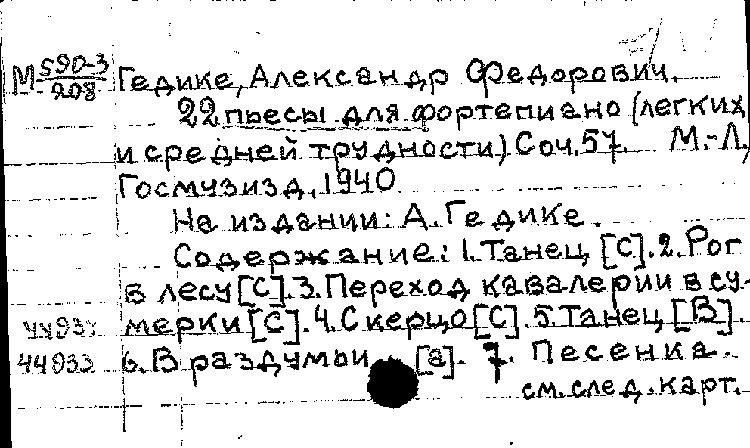 М 590-3
908
Гедике, Александр Федорович.
22 пьесы для фортепиано (легких
и средней трудности) Соч. 57. М.-Л.,
Госмузизд, 1940
На издании: А. Гедике.
Содержание: 1. Танец [С]. 2. Рог
в лесу [С]. 3. Переход кавалерии в су-
мерки [С]. 4. Скерцо [С]. 5. Танец [В].
6. В раздумьи [а]. 7. Песенка.
44933
см. след. карт.